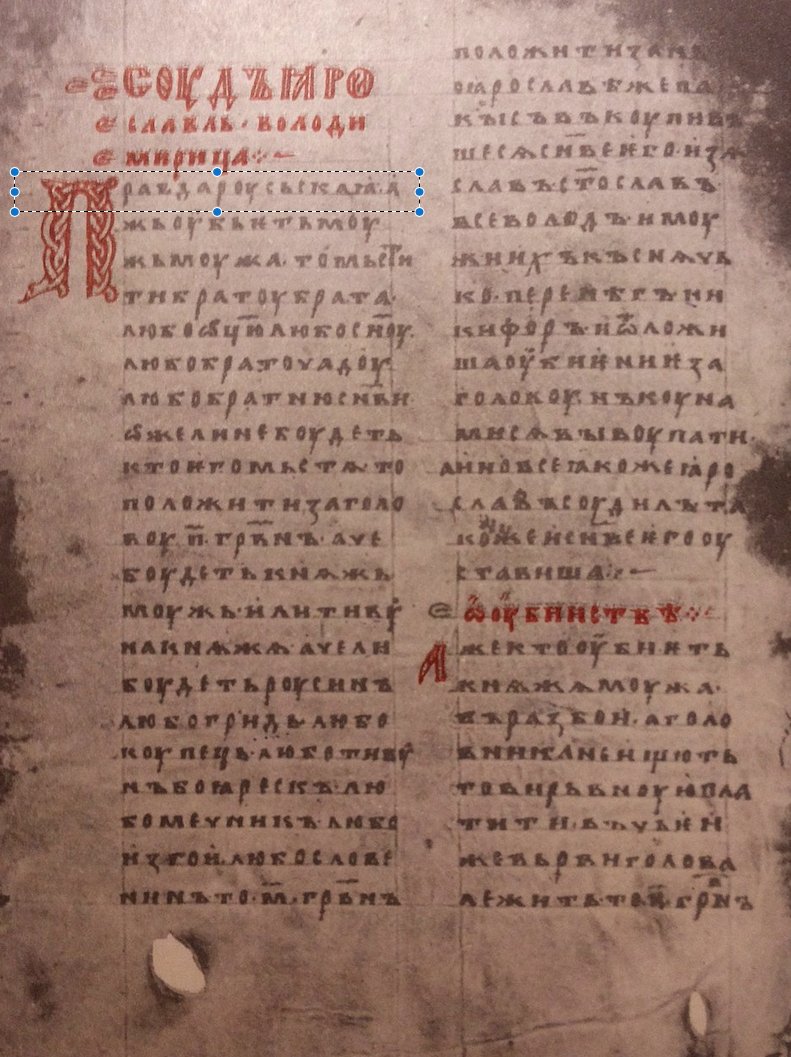 СОУДЪꙖРО
СЛАВЛЬ·ВОЛОДИ
МИРИЦА
ПРАВДАРОУСЬСКАꙖ·А
ЖЬОУБЬѤТЬМОУ
ЖЬМОУЖА·ТОМЬСТИ
ТИБРАТОУБРАТА·
ЛЮБОѾЦЮЛЮБОСН҃ОУ·
ЛЮБОБРАТОУЧАДОУ
ЛЮБОБРАТНЮСН҃ВИ·
ѠЖЕЛИНЕБОУДЕТЬ
КТОѤГОМЬСТѦ·ТО
ПОЛОЖИТИЗАГОЛО
ВОУ·П҃·ГРВ҃НЪ·АЧЕ
БОУДЕТЬКНѦЖЬ
МОУЖЬ·ИЛИТИВОУ
НАКНѦЖѦ·АЧЕЛИ
БОУДЕТЬРОУСИНЪ
ЛЮБОГРИДЬ·ЛЮБО
КОУПЕЦЬ·ЛЮБОТИВОУ
НЪБОꙖРЕСКЪ·ЛЮ
БОМЕЧНИКЪ·ЛЮБО
ИЗГОИ·ЛЮБОСЛОВЕ
НИНЪТО·М҃·ГРВ҃НЪ
ПОЛОЖИТИЗАНЬ
ОꙖРОСЛАВѢЖЕПА
КЫСЪВЪКОУПИВЪ
ШЕСѦСН҃ВЕѤГО·ИЗѦ
СЛАВЪ·СТ҃ОСЛАВЪ·
ВСЕВОЛОДЪ·ИМОУ
ЖИИХЪКЪСНѦЧЬ
КО·ПЕРЕНѢГЪ·НИ
КИФОРЪ·ИѾЛОЖИ
ШАОУБИѤНИѤЗА
ГОЛОВОУ·НЪКОУНА
МИСѦВЫКОУПАТИ·
АИНОВСЕꙖКОЖЕꙖРО
СЛАВЪСОУДИЛЪТА
КОЖЕИСН҃ВЕѤГООУ
СТАВИША
ѠОУБИИСТВѢ
АЖЕКТООУБИѤТЬ
КНѦЖѦМОУЖА·
ВЪРАЗБОИ·АГОЛО
ВНИКАНЕИЩЮТЬ
ТОВИРЬВНОУЮПЛА
ТИТИ·ВЪЧЬѤИ
ЖЕВЬРВИГОЛОВА
ЛЕЖИТЬТОП҃·ГРВ҃НЪ